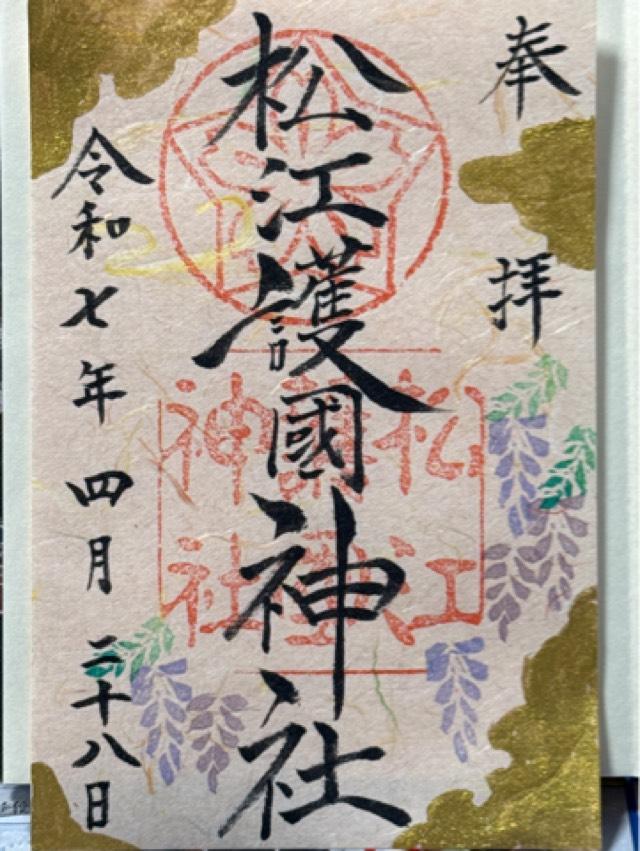 奉拝
松江護國神社
松江護國神社
令和七年四月二十八日